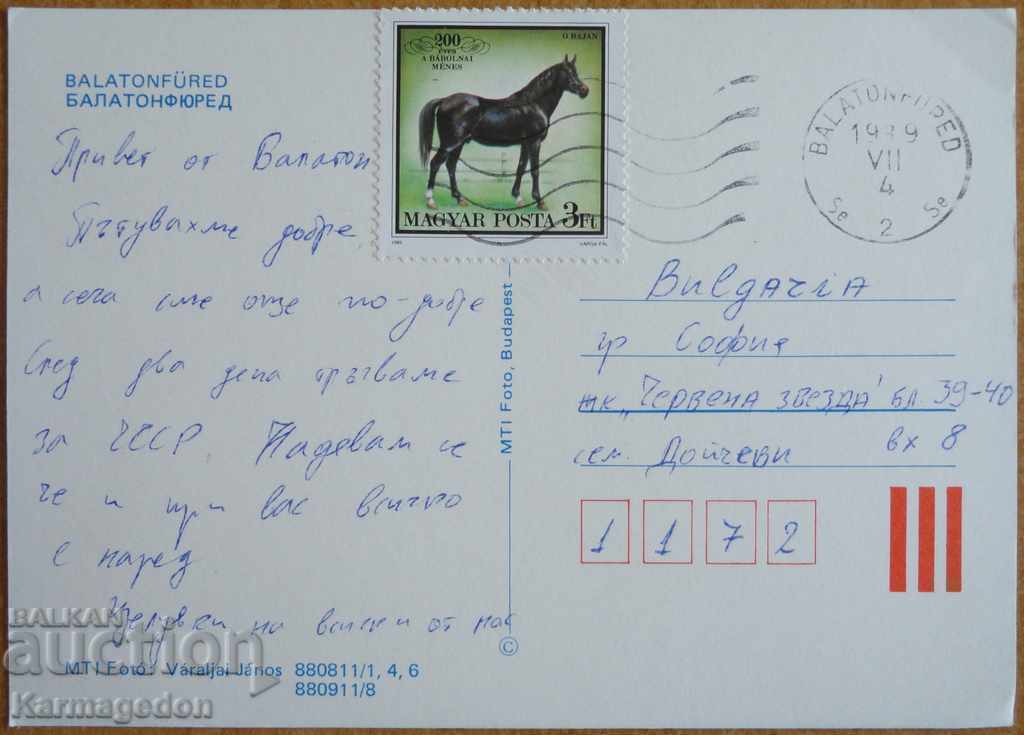 BALATONFÜRED
БАЛАТОНФЮРЕД
Привет от Балатон
Пътувахме добре
а сега сме още по-добре
След два дена тръгваме
за ЧССР. Надевам се
че и при вас всичко
е наред.
Целувки на всички от нас
MTI Fotó: Váraljai János 880811/1, 4, 6
880911/8
MTI Foto, Budapest
©
200
éves
A BÁBOLNAI
MÉNES
O'BAJAN
MAGYAR POSTA 3Ft
BALATONFÜRED
1989
VII
4
Se 2 Se
Bulgaria
гр София
жк „Червена звезда" бл. 39-40
сем. Дойчеви вх 8
1 1 7 2
BALKAN
auction
Karmagedon